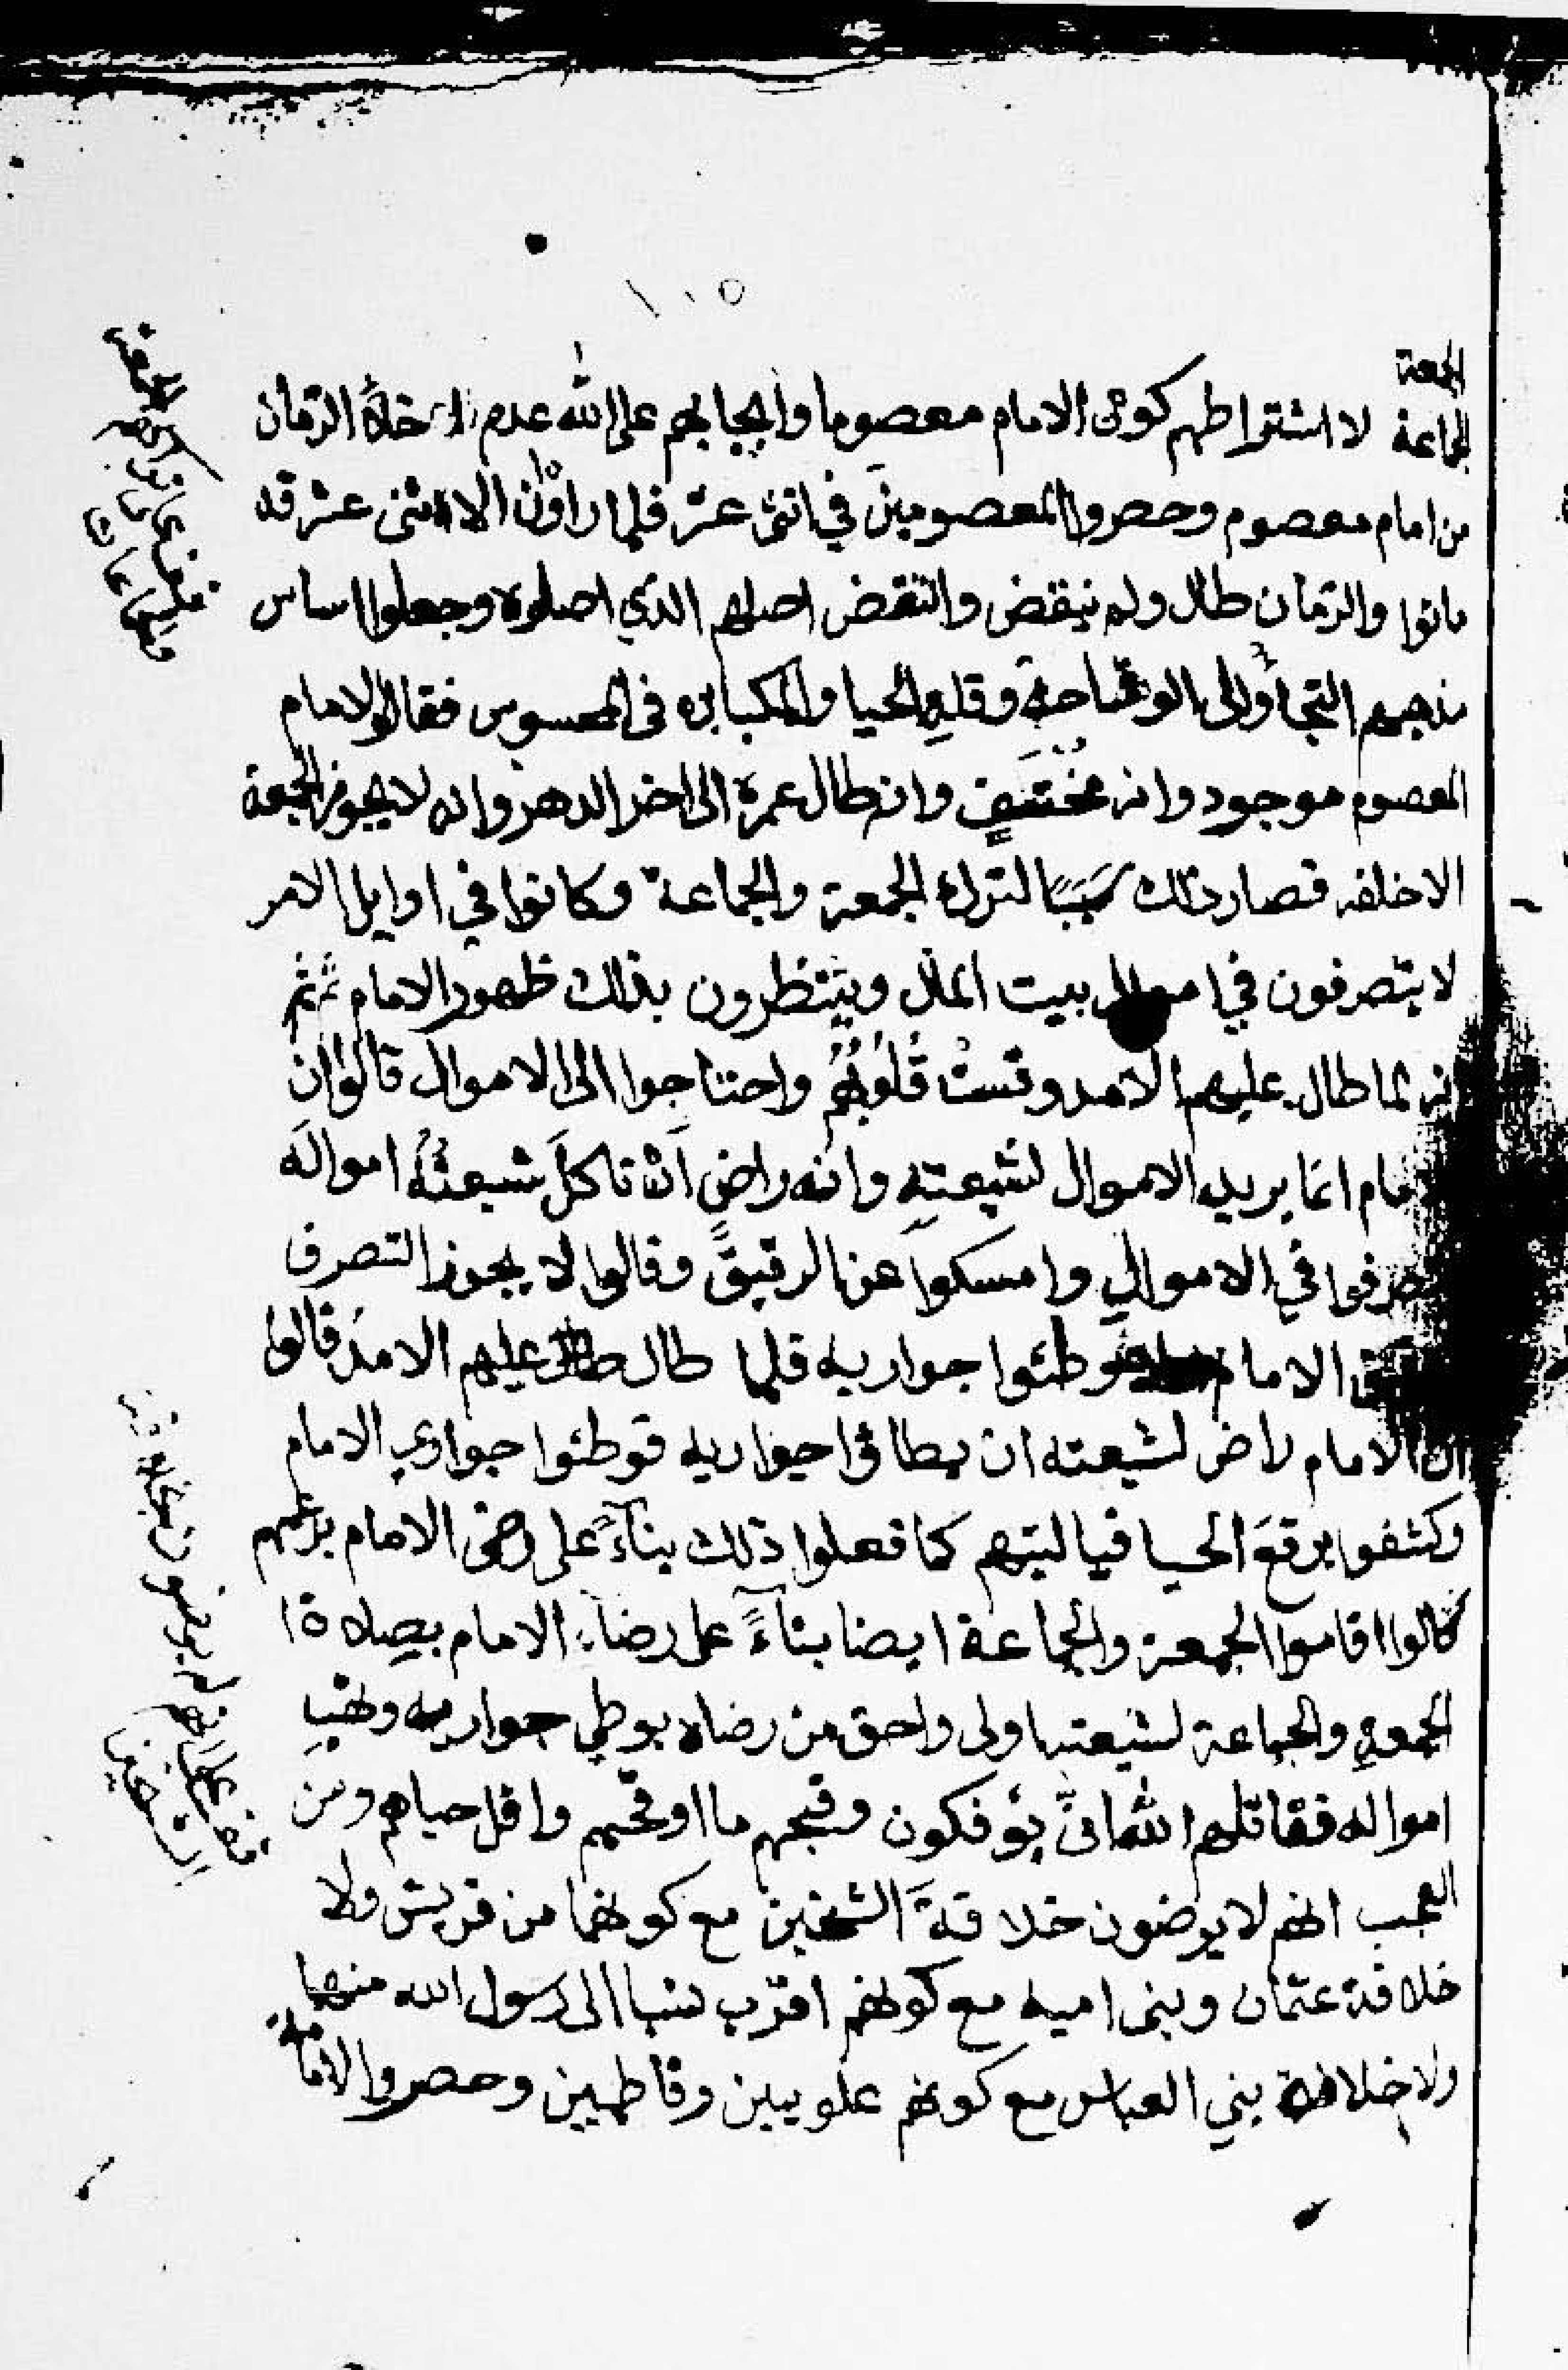 ١٠٥
الجمعة
الجماعة لاشتراطهم كون الامام معصوما وايجابهم على الله عدم اخلاء الزمان
من امام معصوم وحصروا المعصومين في اثنى عشر فلما راوان الاثنى عشر قد
ماتوا والزمان طال ولم ينقض وانتقض اصلهم الذي اصلوه وجعلوا اساس
مذهبهم التجأوا الى الوقاحة وقلة الحيا والمكابره في المحسوس فقالوا الامام
المعصوم موجود وانه مختف وان طال عمره الى اخر الدهر وانه لا يجوز الجمعة
الا خلفه فصار ذلك سببا لترك الجمعة والجماعة وكانوا في اوايل الامر
لا يتصرفون في اموال بيت المال وينتظرون بذلك ظهور الامام ثم
انه لما طال عليهم الامد وقست قُلُوبُهُم واحتاجوا الى الاموال قالوا ان
الامام انما يريد الاموال لشيعتِهِ وانه راضٍ اَنْ تاكلَ شيعتُهُ اموالَه
فتصرفوا في الاموالِ وامسكوا عن الرقيق وقالوا لا يجوز التصرف
الامام وطئوا جواريه فلما طال عليهم الامد قالوا
ان الامام راض لشيعته ان يطائوا جواريه فوطئوا جواري الامام
وكشفوا برقعَ الحيا فيا ليتهم كما فعلوا ذلك بناءً على رضى الامام بزعمهم
كانوا اقاموا الجمعة والجماعة ايضا بناءً على رضاء الامام بصلاة ا
الجمعةِ والجماعة لشيعته اولى واحق من رضاه بوطي جواريه ونهبِ
امواله فقاتلهم الله انىّ يؤفكون وقبحهم ما اوقحهم واقل حياهم ومن
العجب انهم لا يرضون خلافةَ الشيخين مع كونهما من قريش ولا
خلافة عثمان وبنى اميه مع كونهم اقرب نسبا الى رسول الله منهما
ولا خلافة بني العباس مع كونهم علويين وفاطميين وحصروا الامامة